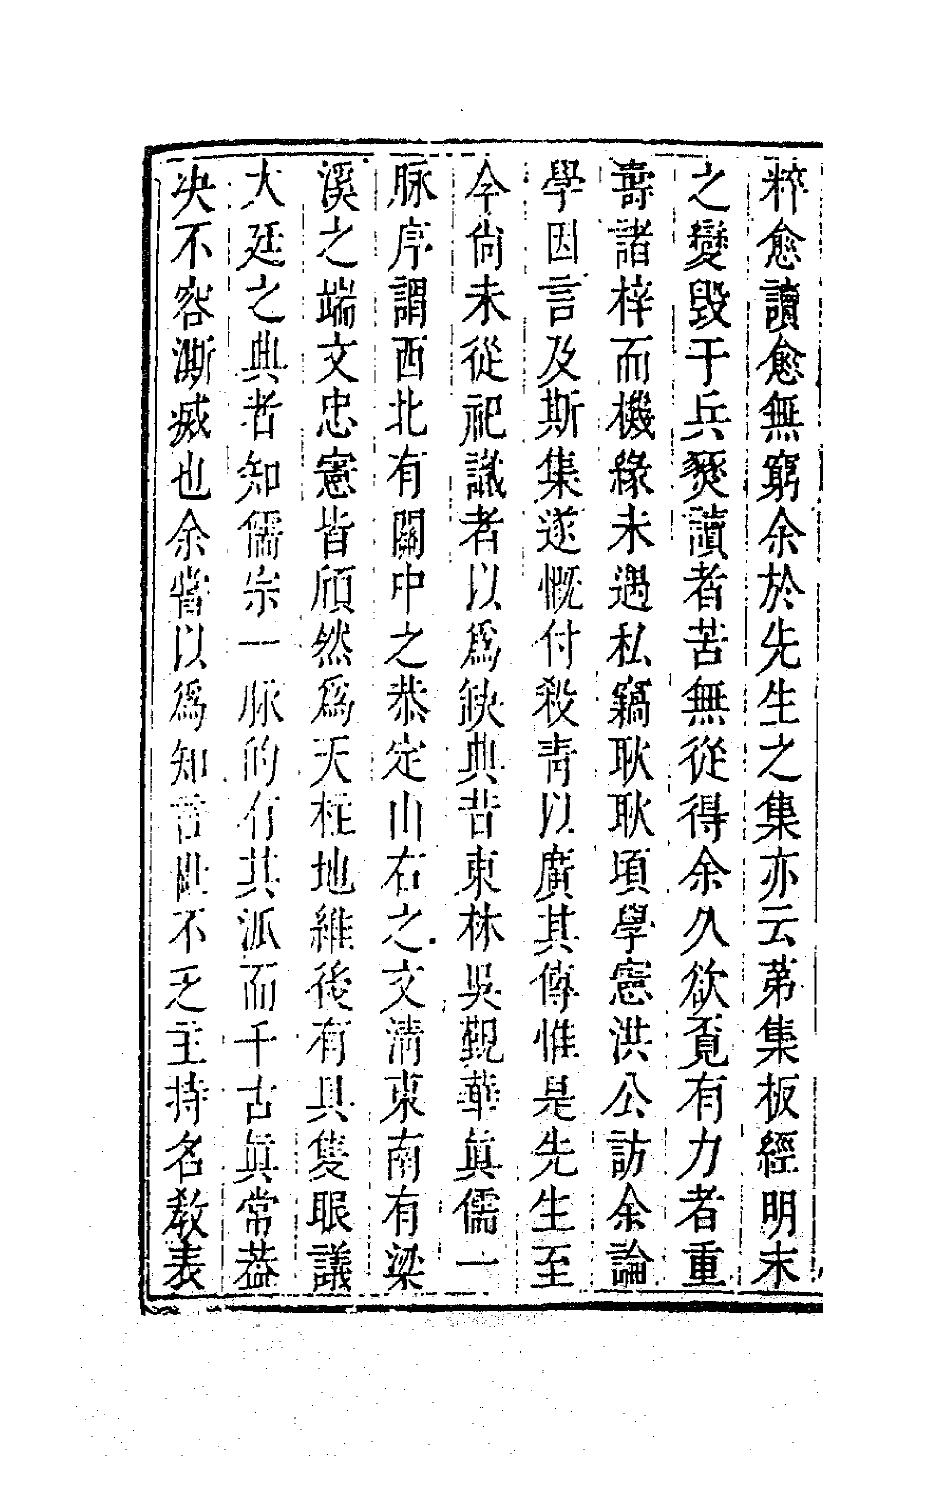 粹愈讀愈無窮余於先生之集亦云苐集板經明末
之變毀于兵燹讀者苦無從得余久欲覔有力者重
壽諸梓而機緣未遇私竊耿耿頃學憲洪公訪余論
學因言及斯集遂慨付殺靑以廣其傳惟是先生至
今尙未從祀識者以爲缺典昔東林吳覲華眞儒一
脉序謂西北有關中之恭定山右之文清東南有梁
溪之端文忠憲皆頎然爲天柱地維後有具隻眼議
大廷之典者知儒宗一脉的有其派而千古眞常葢
决不容澌滅也余嘗以爲知言世不乏主持名敎表